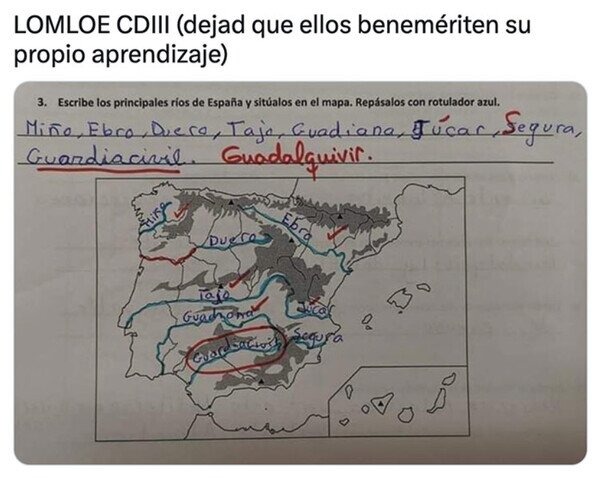 LOMLOE CDIII (dejad que ellos benemériten su
propio aprendizaje)
3. Escribe los principales ríos de España y sitúalos en el mapa. Repásalos con rotulador azul.
Miño, Ebro, Duero, Tajo, Guadiana, Júcar, Segura,
Guardiacivil. Guadalquivir.
Miño
Ebro
Duero
Tajo
Guadiana
Júcar
Segura
Guardiacivil